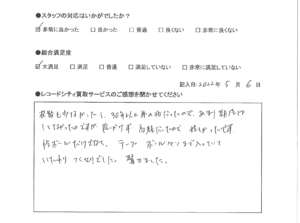 ●スタッフの対応はいかがでしたか？
☑ 非常に良かった □ 良かった □ 普通 □ 良くない □ 非常に良くない
●総合満足度
☑ 大満足 □ 満足 □ 普通 □ 満足していない □ 非常に満足していない
記入日:2022年 5月 6日
●レコードシティ買取サービスのご感想を聞かせてください
枚数も少なかったし、30年以上前の物だったので、あまり期待は
していなかったのですが
段ボールだけでなく、テープ ボールペンまで入っていて
いたれり つくせりでした。